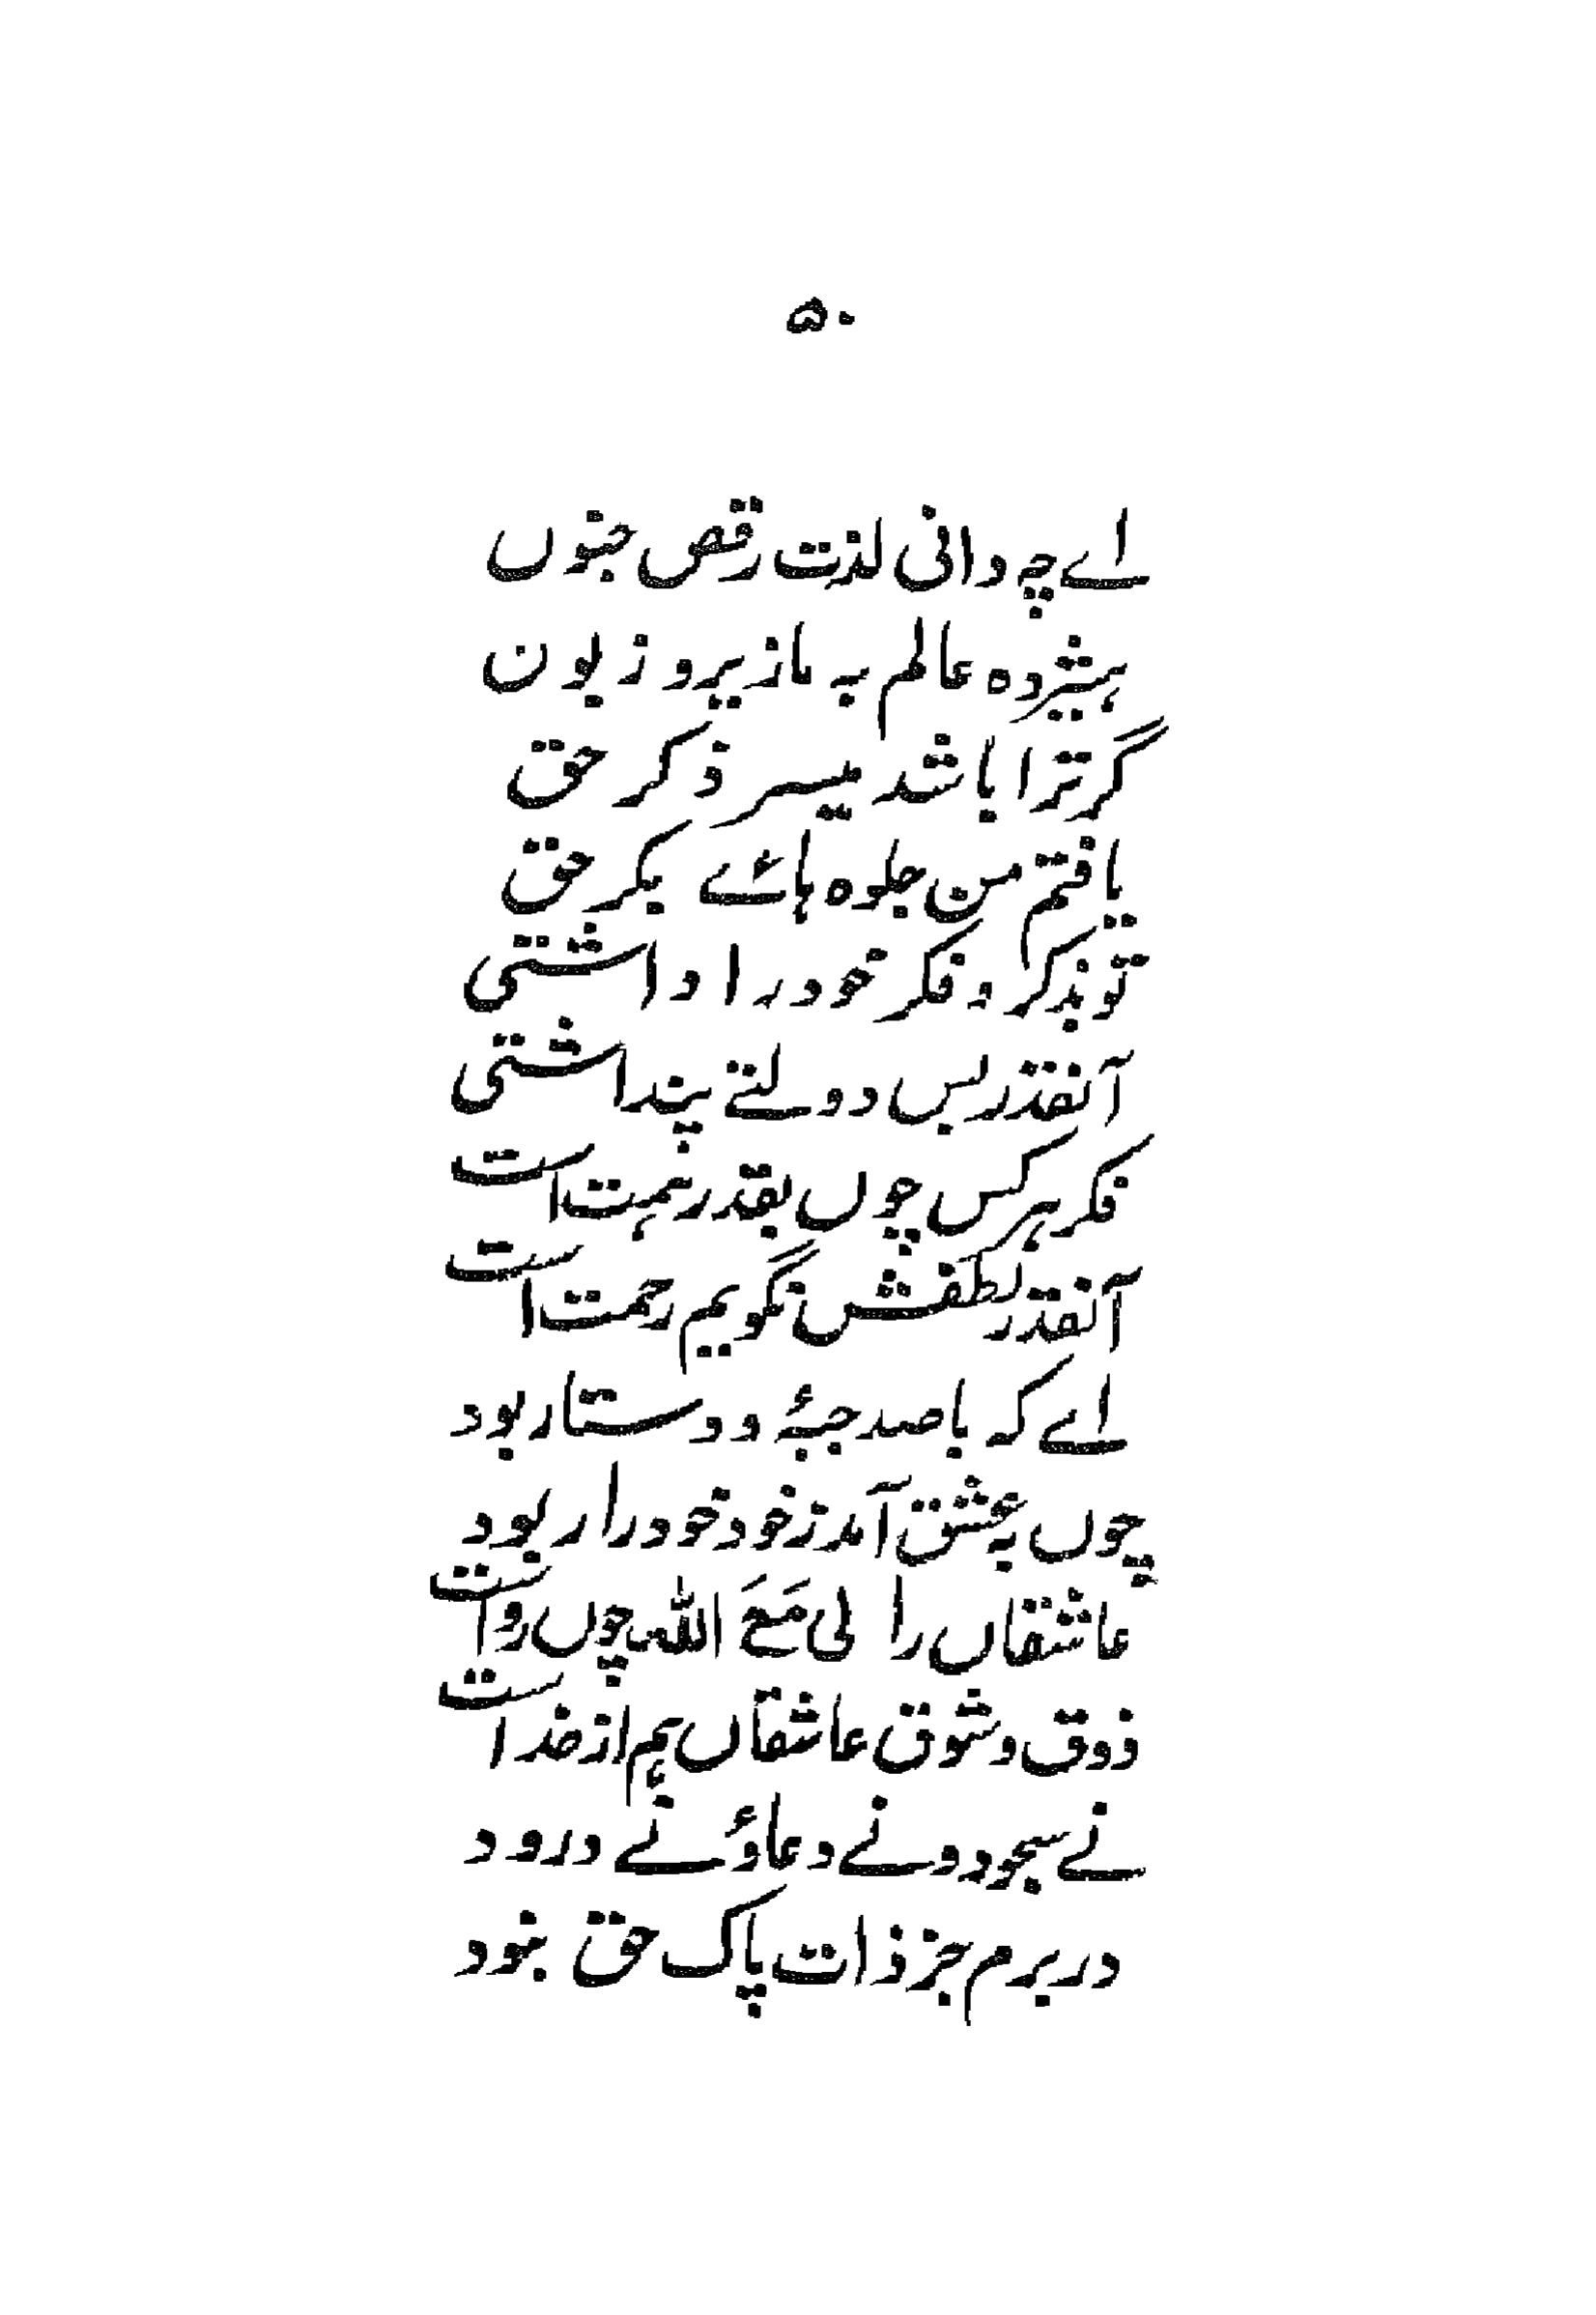 ۵۰
اے چہ دانی لذت رقص جنوں
ہیژدہ عالم بہ ما زیر و زبون
گر ترا باشد میسر ذکر حق
یافتم من جلوہ ہائے بکر حق
تو بذکر و فکر خود را داشتی
آنقدر بس دولتے پنداشتی
فکر ہر کس چوں بقدر ہمت است
آنقدر لطفش نگویم رحمت است
اے کہ با صد جبۂ و دستار بود
چوں بہ عشق آمد ز خود خود را ربود
عاشقاں را لی مَعَ اللہ چوں رواست
ذوق و شوق عاشقاں ہم از خداست
نے سجود و نے دعاؤ نے درود
در برم جز ذات پاک حق نبود